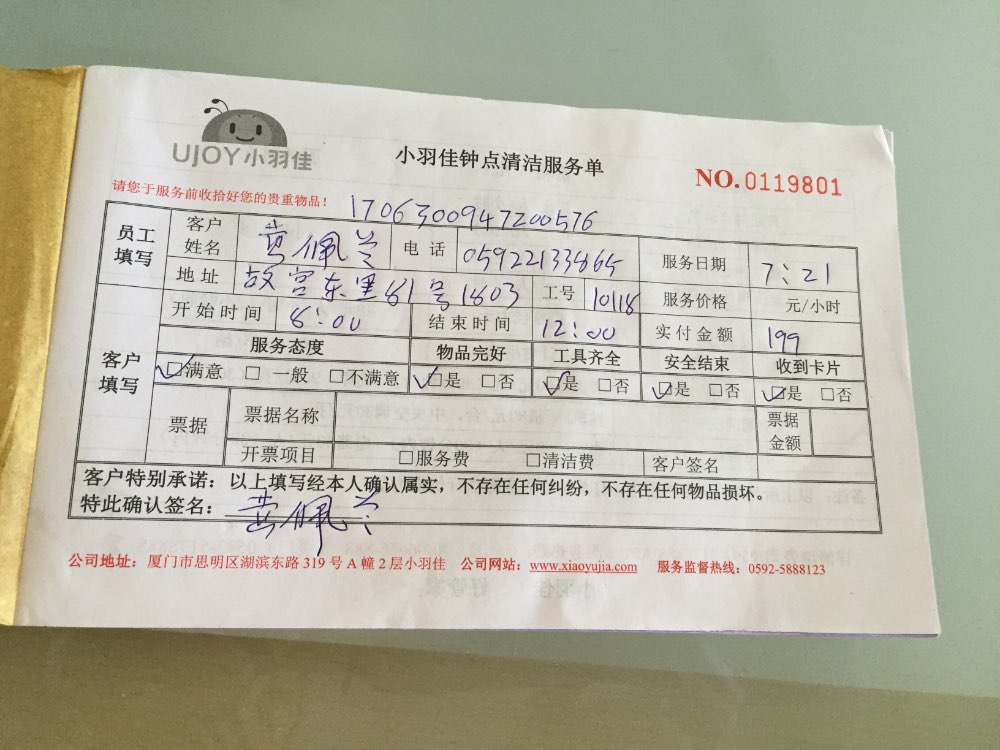 UJOY小羽佳
小羽佳钟点清洁服务单
NO.0119801
请您于服务前收拾好您的贵重物品!
1706300947200576
员工填写 客户姓名 黄佩兰 电话 05922133665 服务日期 7:21
地址 故宫东里81号1803 工号 10118 服务价格 元/小时
客户填写 开始时间 8:00 结束时间 12:00 实付金额 199
服务态度 物品完好 工具齐全 安全结束 收到卡片
☑满意 □一般 □不满意 ☑是 □否 ☑是 □否 ☑是 □否 ☑是 □否
票据 票据名称 票据金额
开票项目 □服务费 □清洁费 客户签名
客户特别承诺:以上填写经本人确认属实,不存在任何纠纷,不存在任何物品损坏。
特此确认签名: 黄佩兰
公司地址:厦门市思明区湖滨东路319号A幢2层小羽佳 公司网站:www.xiaoyujia.com 服务监督热线:0592-5888123